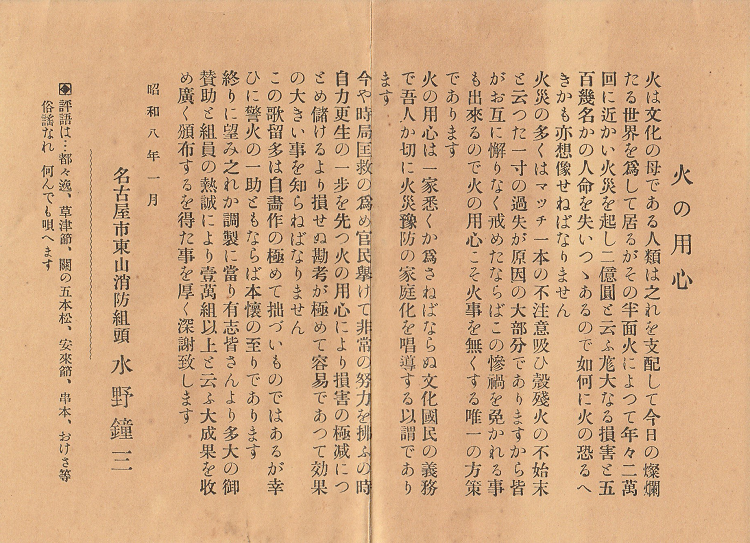 火の用心
火は文化の母である人類は之れを支配して今日の燦爛
たる世界を爲して居るがその半面火によつて年々二萬
回に近かい火災を起し二億圓と云ふ尨大なる損害と五
百幾名かの人命を失いつゝあるので如何に火の恐るへ
きかも亦想像せねばなりません
火災の多くはマッチ一本の不注意吸ひ殼殘火の不始末
と云つた一寸の過失が原因の大部分でありますから皆
がお互に懈りなく戒めたならばこの慘禍を免かれる事
も出來るので火の用心こそ火事を無くする唯一の方策
であります
火の用心は一家悉くか爲さねばならぬ文化國民の義務
で吾人か切に火災豫防の家庭化を唱導する以謂であり
ます
今や時局匡救の爲め官民擧けて非常の努力を拂ふの時
自力更生の一步を先つ火の用心により損害の極減につ
とめ儲けるより損せぬ勘考が極めて容易であつて効果
の大きい事を知らねばなりません
この歌留多は自畵作の極めて拙づいものではあるが幸
ひに警火の一助ともならば本懷の至りであります
終りに望み之れか調製に當り有志皆さんより多大の御
賛助と組員の熱誠により壹萬組以上と云ふ大成果を收
め廣く頒布するを得た事を厚く深謝致します
昭和八年一月
名古屋市東山消防組頭 水野鐘三
◈ 評語は…都々逸、草津節、關の五本松、安來節、串本、おけさ等
俗謠なれ 何んでも唄へます